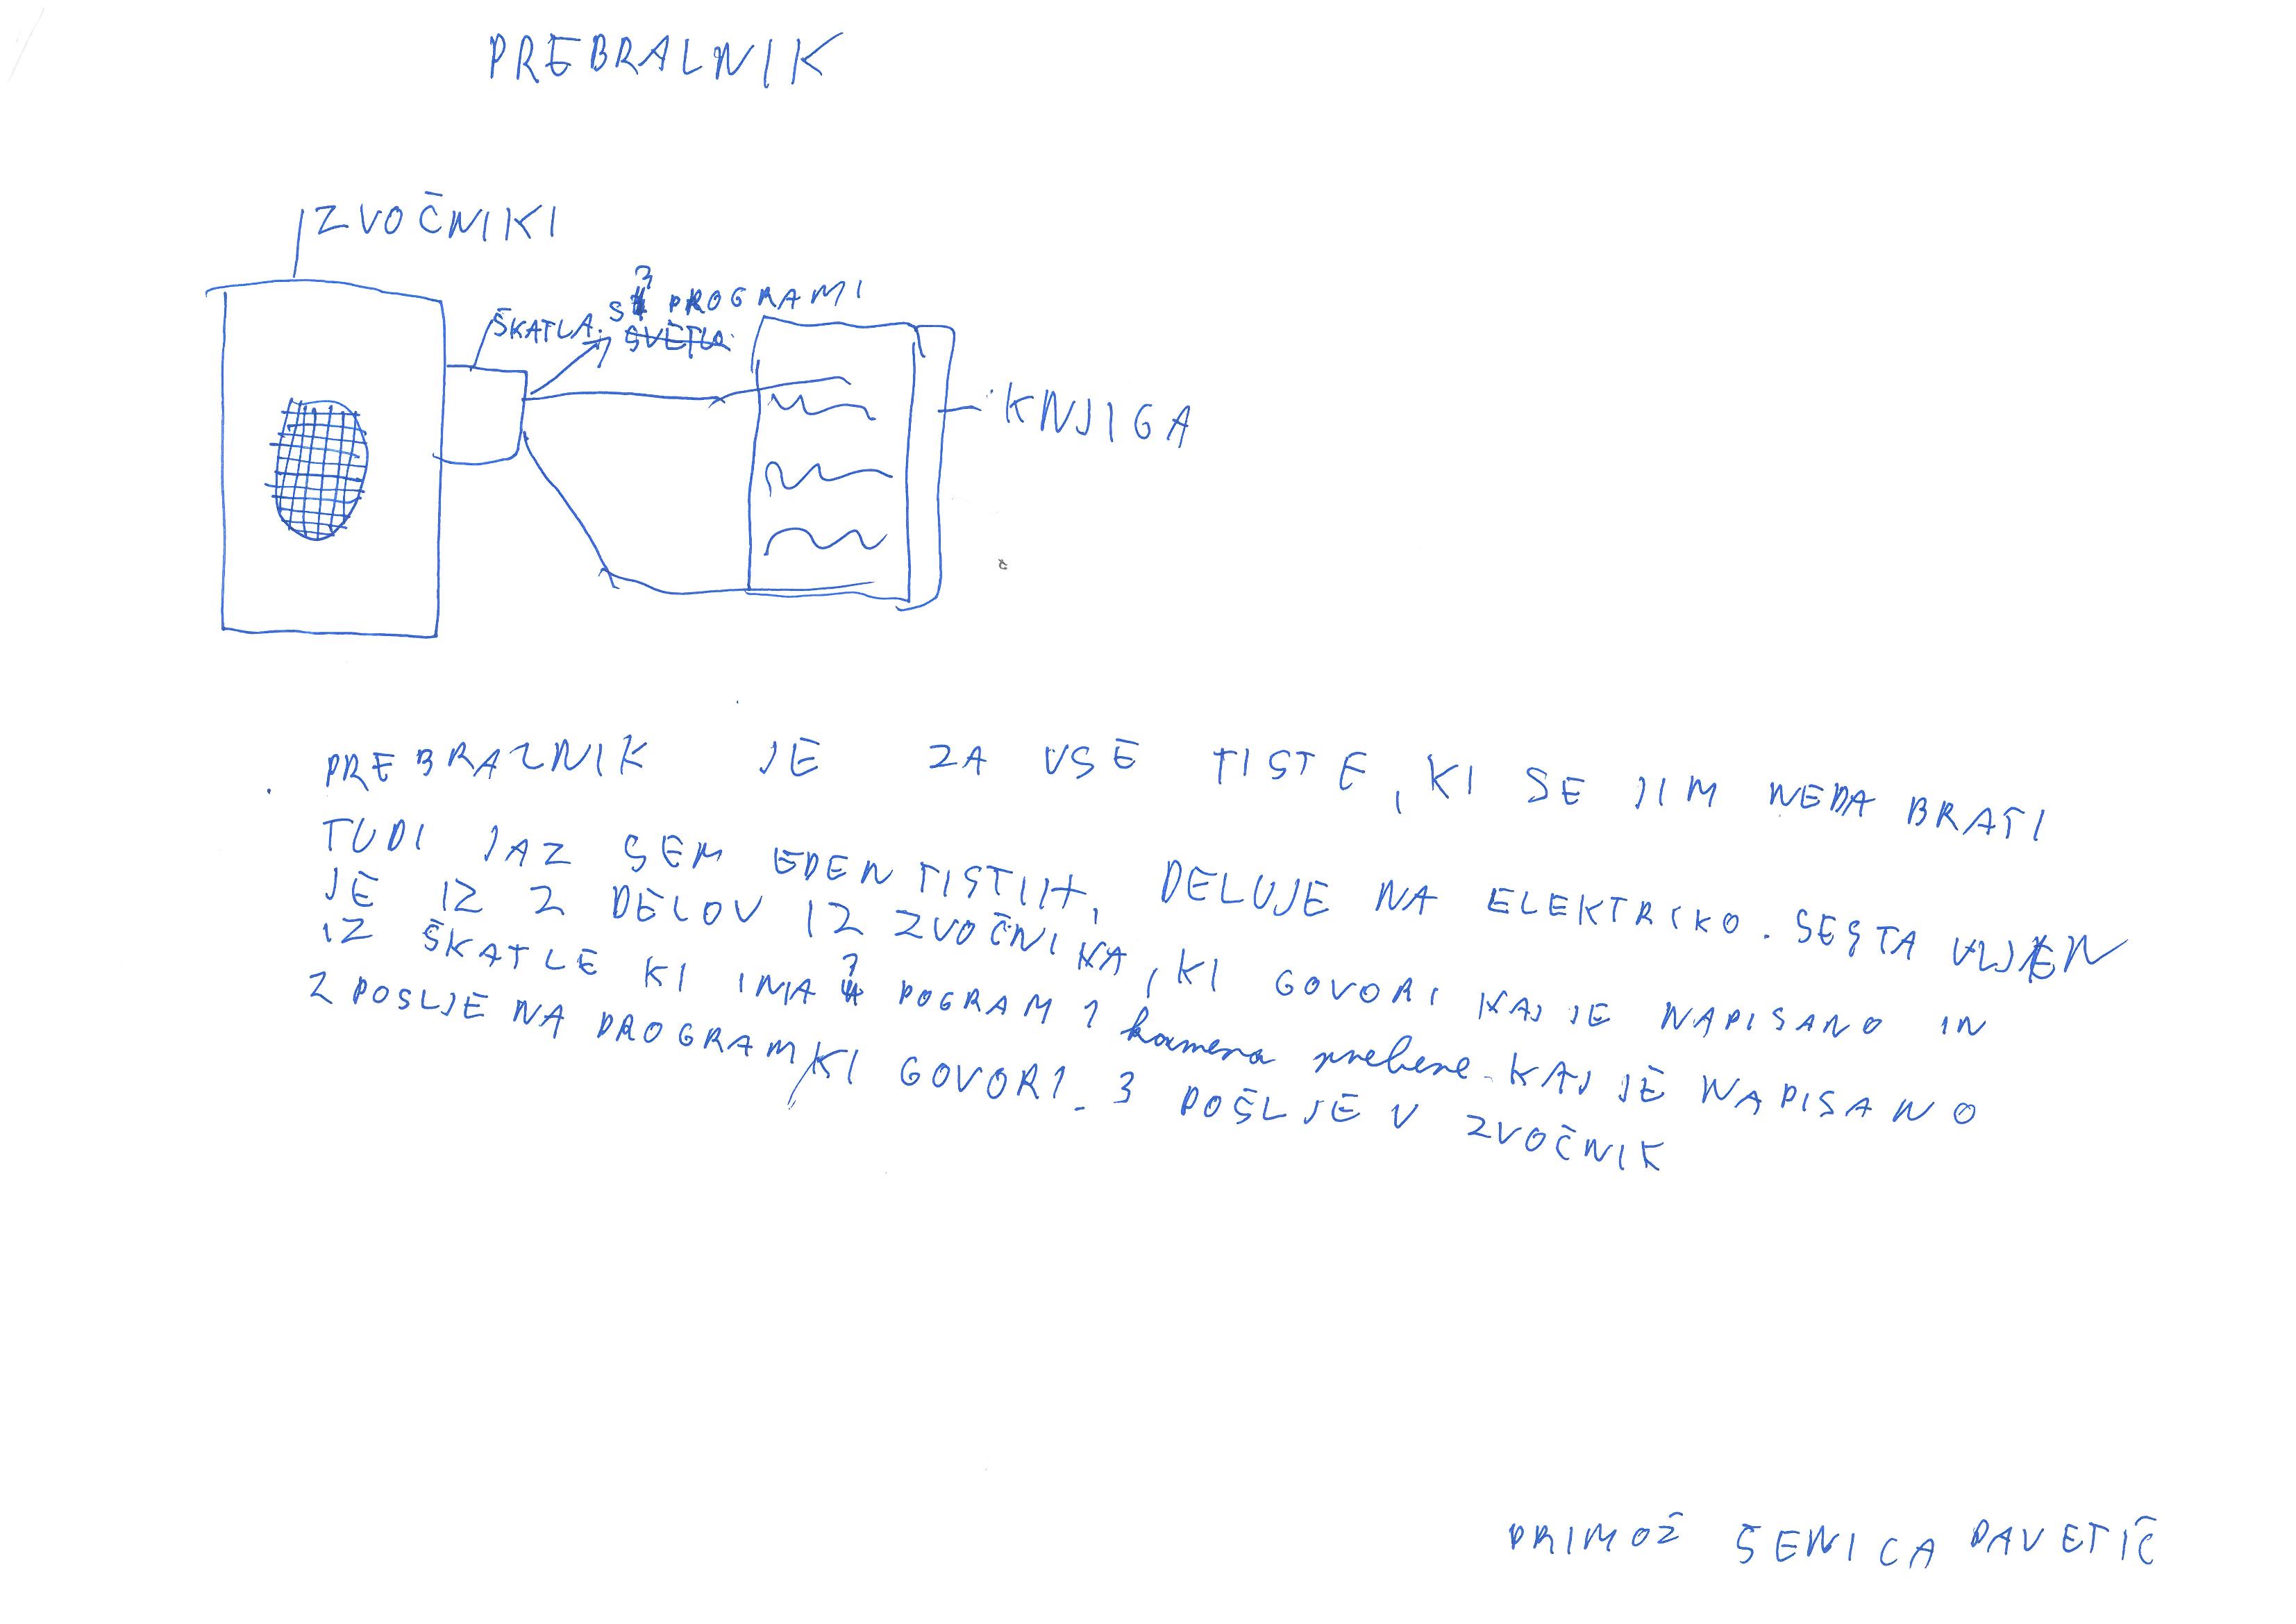 PREBRALNIK
ZVOČNIKI
ŠKATLA S 3 PROGRAMI
KNJIGA
PREBRALNIK JE ZA VSE TISTE, KI SE JIM NEDA BRATI
TUDI JAZ SEM EDEN TISTIH, DELUJE NA ELEKTRIKO. SESTAVLJEN
JE IZ 2 DELOV IZ ZVOČNIKA, KI GOVORI KAJ JE NAPISANO IN
IZ ŠKATLE KI IMA 3 POGRAM 1 kamera prebere KAJ JE NAPISANO
2 POSLJE NA PROGRAM KI GOVORI. 3 POŠLJE V ZVOČNIK
PRIMOŽ SENICA PAVETIČ